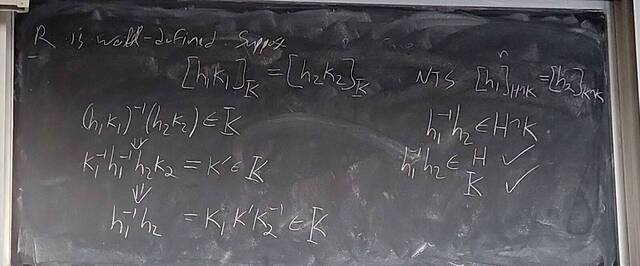 R is well-defined. Suppose
[h₁k₁]_K = [h₂k₂]_K
NTS [h₁]_{H∩K} = [h₂]_{H∩K}
(h₁k₁)⁻¹(h₂k₂) ∈ K
⇓
k₁⁻¹h₁⁻¹h₂k₂ = k' ∈ K
⇓
h₁⁻¹h₂ = k₁k'k₂⁻¹ ∈ K
h₁⁻¹h₂ ∈ H∩K
h₁⁻¹h₂ ∈ H ✓
K ✓